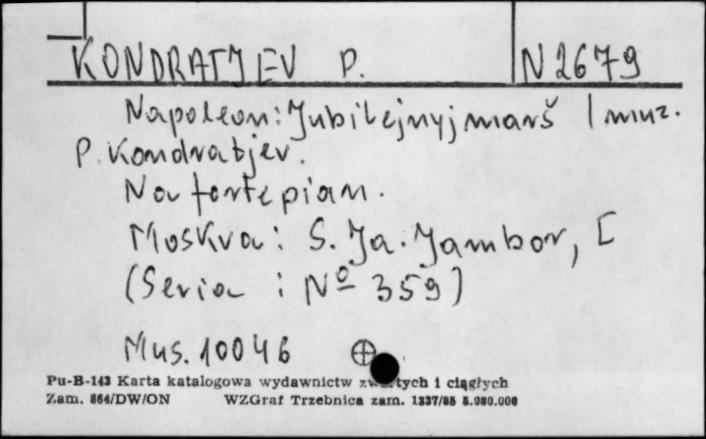 KONDRATJEV P. N 2679
Napoleon: Jubilejnyj marš / muz.
P. Kondratjev.
Na fortepian.
Moskva: S. Ja. Jambor, [
(Seria : Nº 359)
Mus. 10046
Pu-B-143 Karta katalogowa wydawnictw zwartych i ciągłych
Zam. 864/DW/ON WZGraf Trzebnica zam. 1337/85 5.000.000